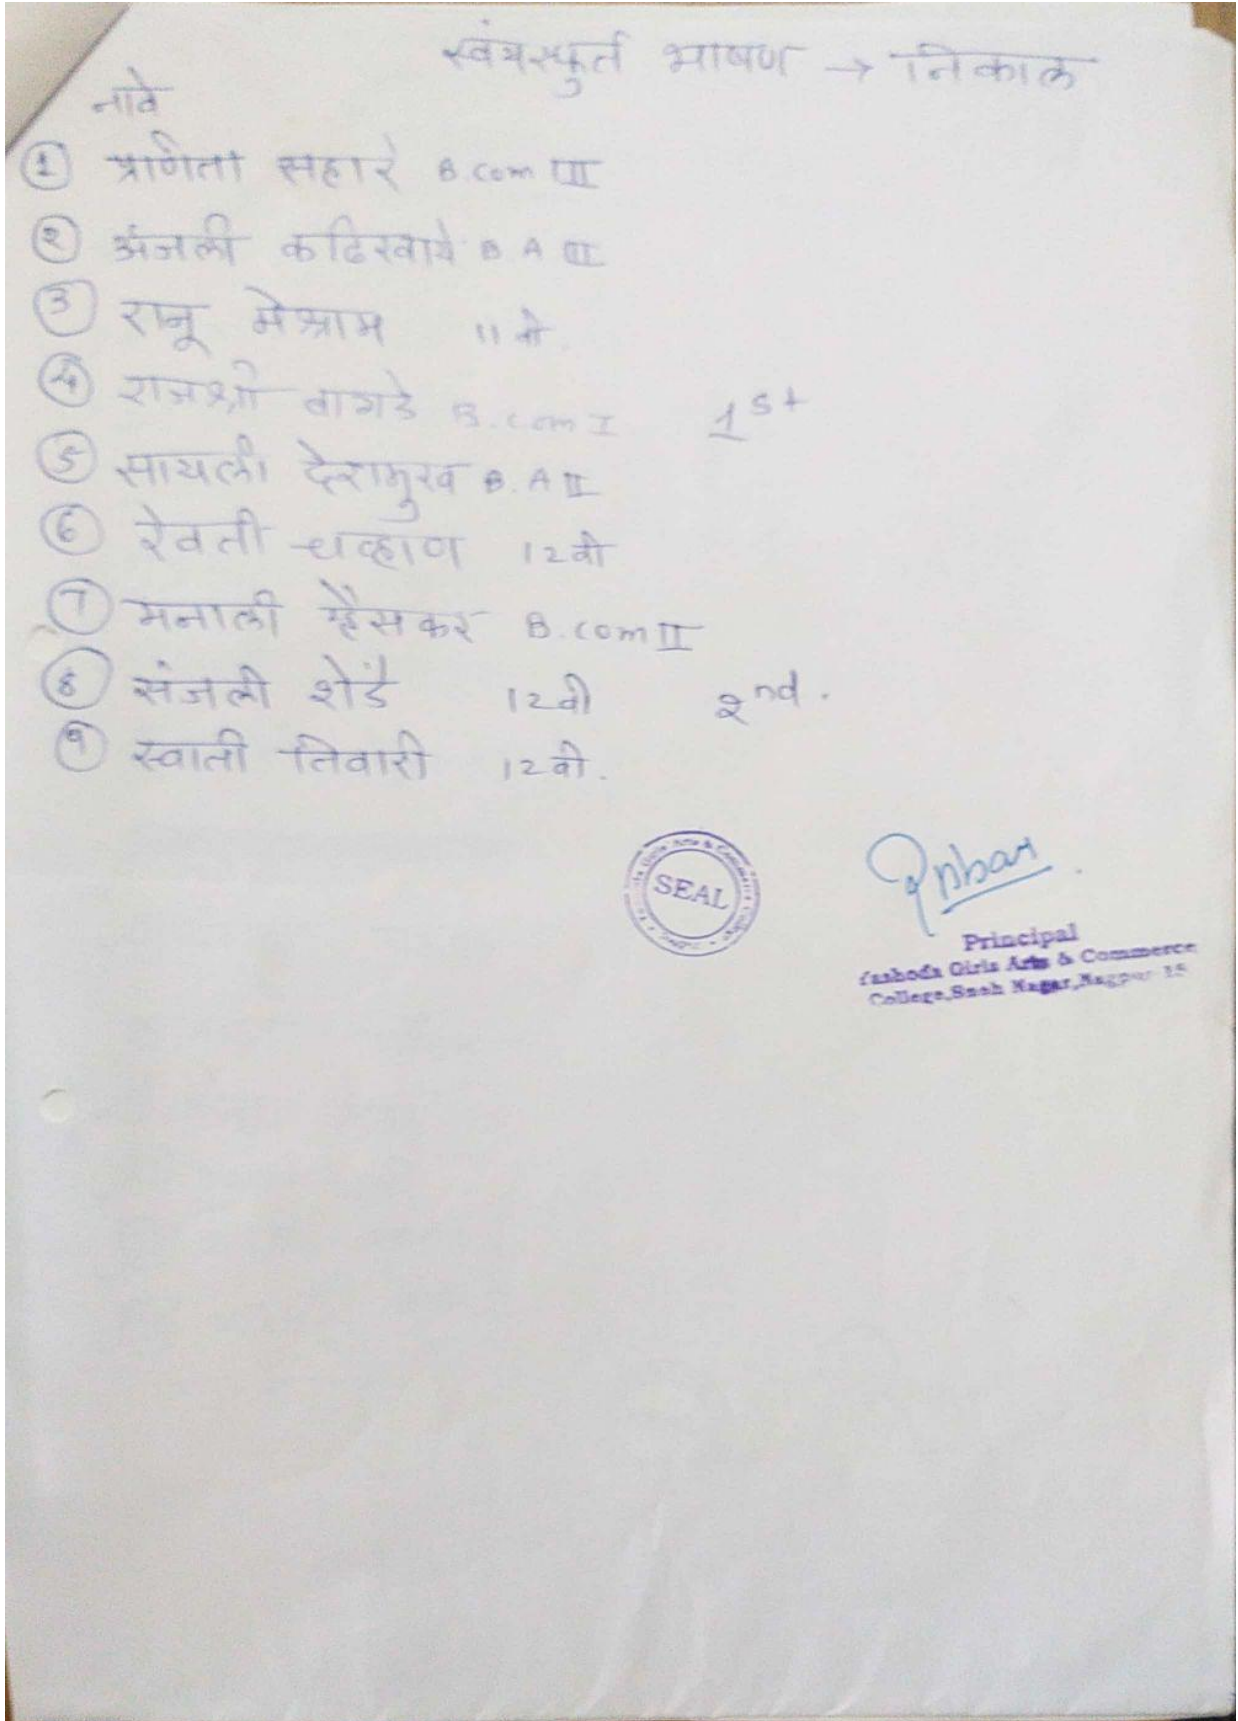 स्वंयस्फुर्त भाषण → निकाल
नावे
① प्रणिता सहारे B.com III
② अंजली कढिखाये B.A III
③ रानू मेश्राम 11 वी.
④ राजश्री वागडे B.com I 1st
⑤ सायली देशमुख B.A II
⑥ रेवती चव्हाण 12 वी
⑦ मनाली म्हैसकर B.com II
⑧ संजली शेंडे 12 वी 2nd.
⑨ स्वाती तिवारी 12 वी.
Girls Arts & Commerce College
SEAL
Principal
Yashoda Girls Arts & Commerce
College, Sneh Nagar, Nagpur 15